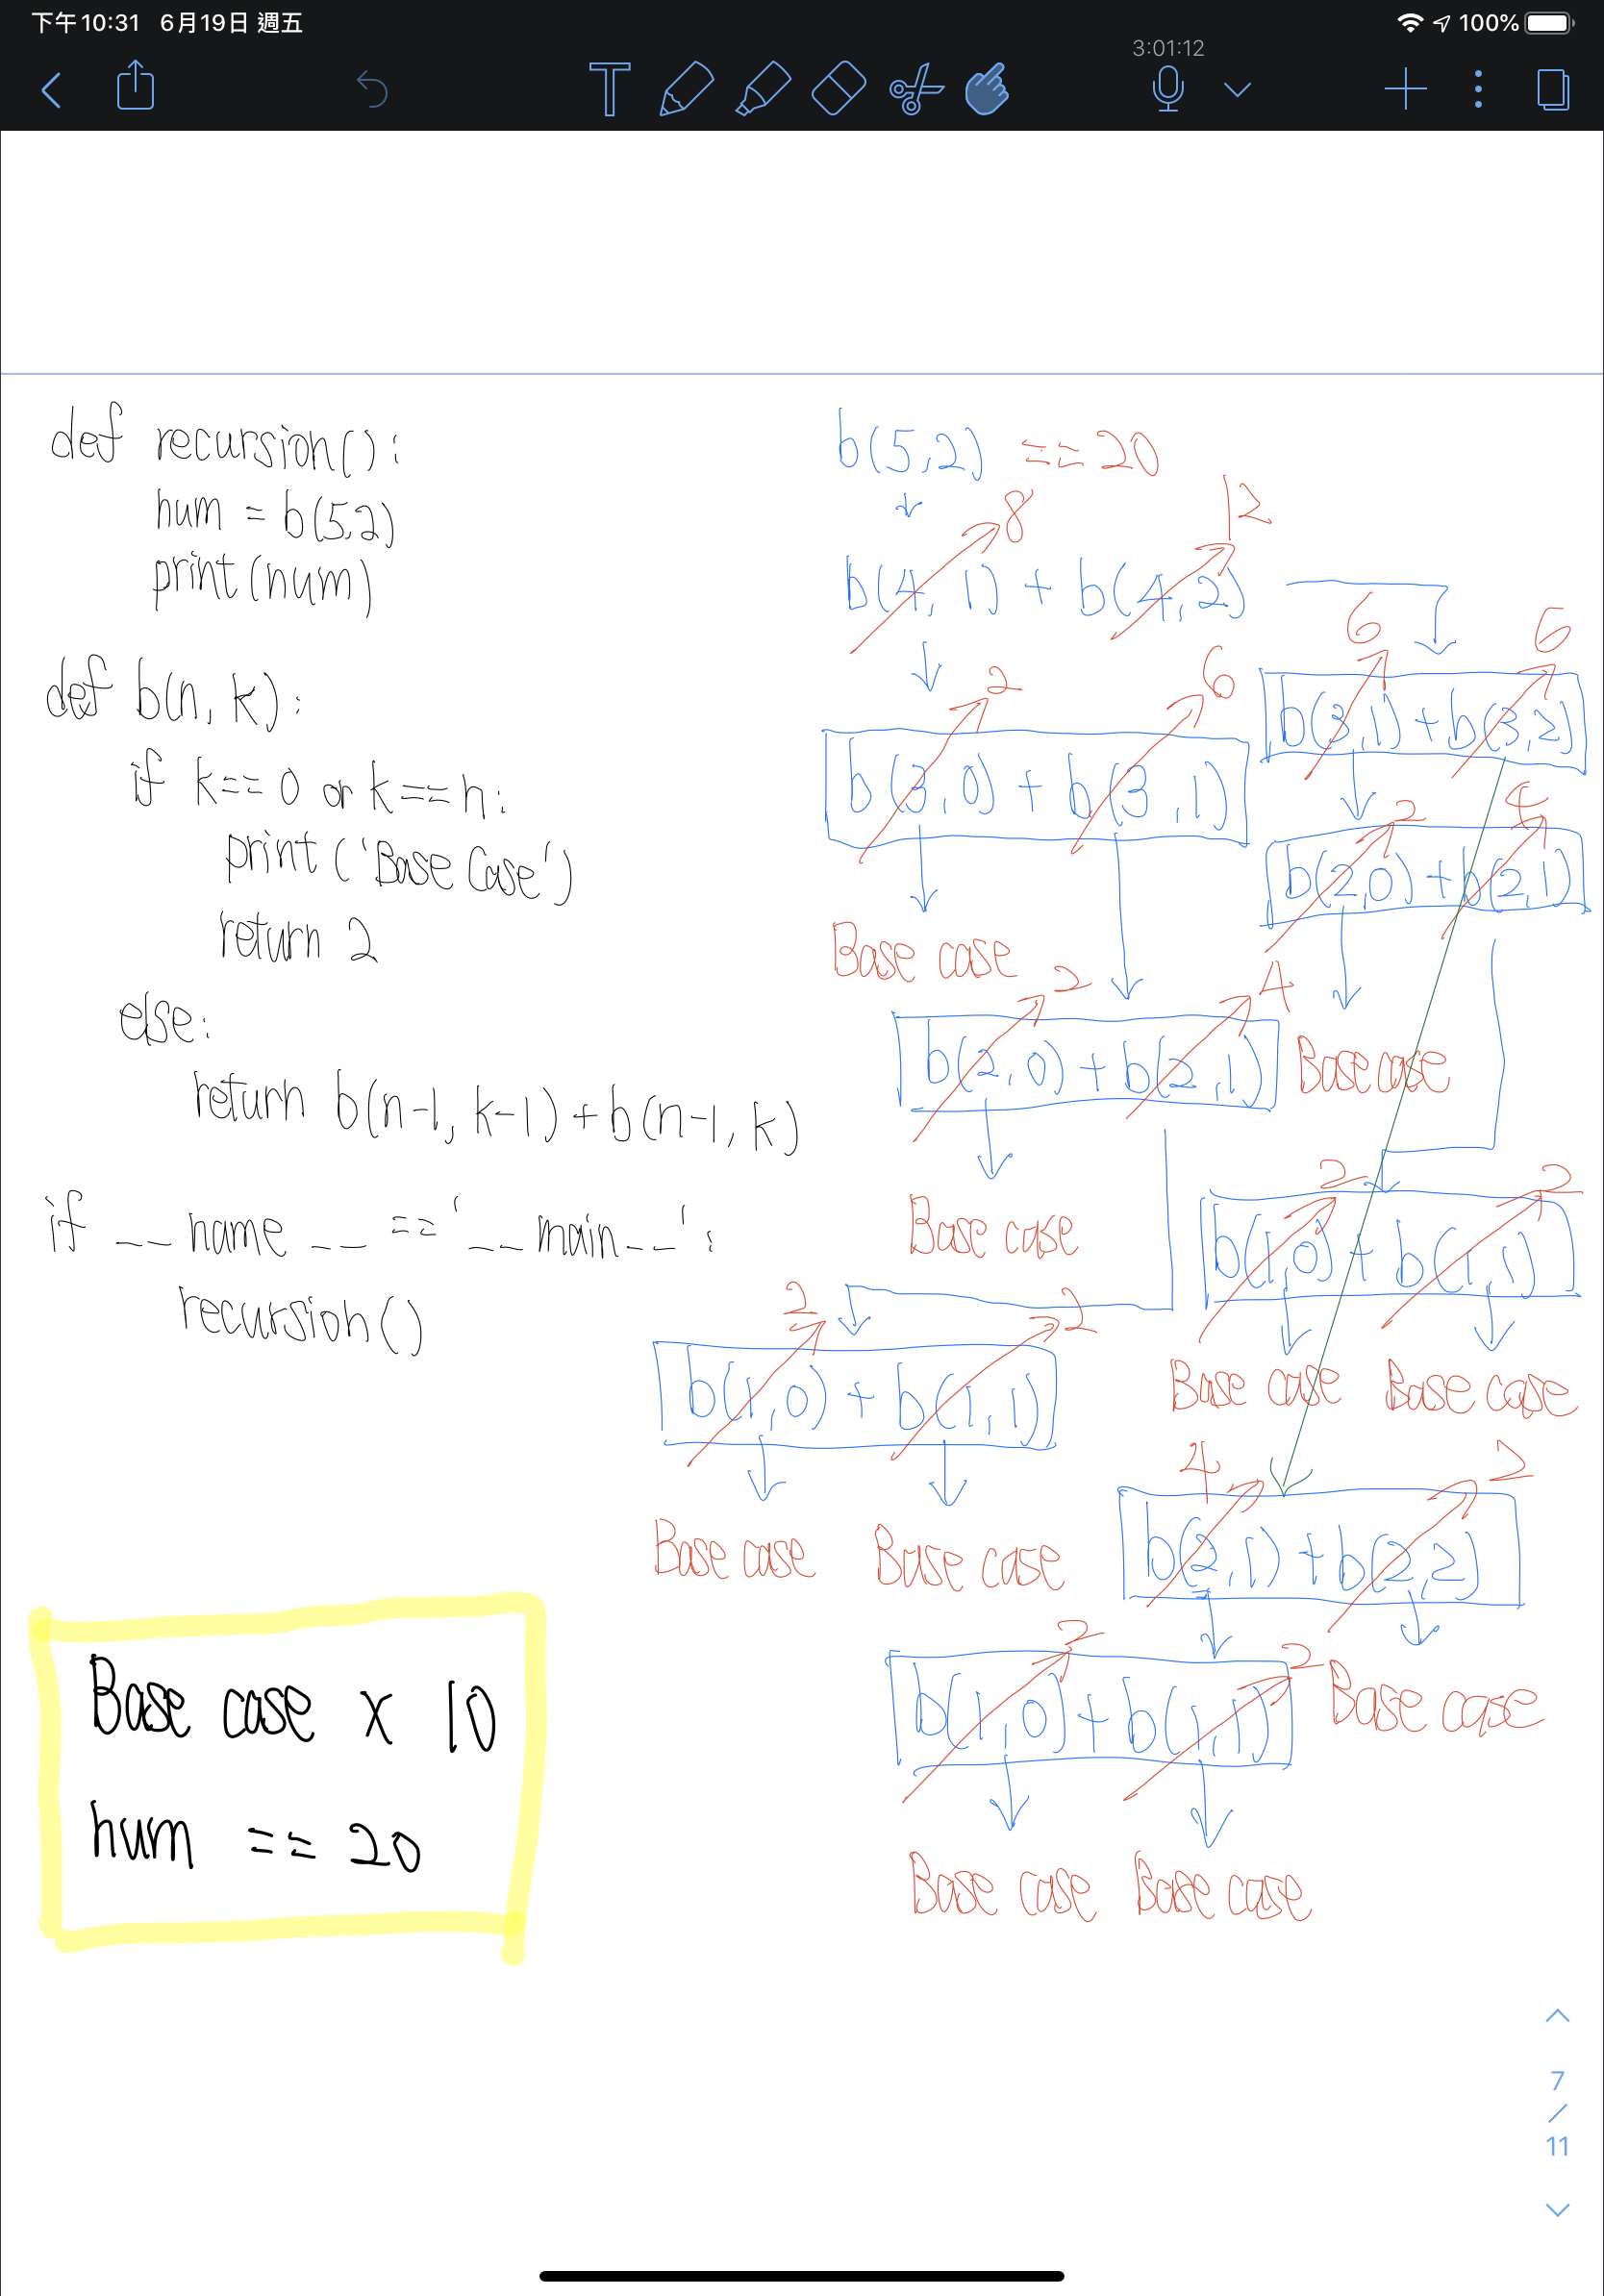 下午10:31 6月19日 週五
100%
3:01:12
T
def recursion():
num = b(5,2)
print(num)
def b(n, k):
if k==0 or k==n:
print('Base Case')
return 2
else:
return b(n-1, k-1)+b(n-1, k)
if __name__=='__main__':
recursion()
Base case x 10
num == 20
b(5,2) ==20
8
12
b(4, 1) + b(4,2)
6
6
b(3,1)+b(3,2)
2
6
b(3,0) + b(3,1)
2
4
b(2,0)+b(2,1)
Base case
2
4
b(2,0)+b(2,1)
Base case
Base case
2
2
b(1,0)+b(1,1)
Base case
Base case
2
2
b(1,0)+b(1,1)
Base case
Base case
4
2
b(2,1)+b(2,2)
2
2
b(1,0)+b(1,1)
Base case
Base case
Base case
7
/
11